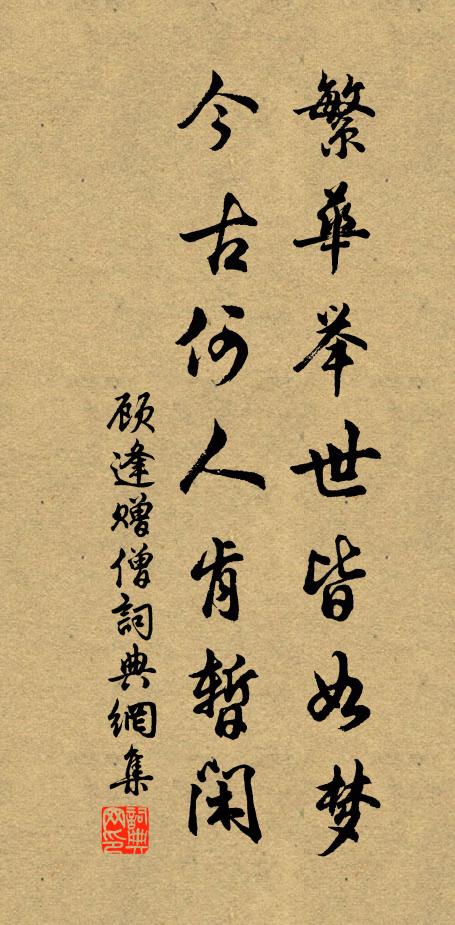 繁華举世皆如梦
今古何人肯暫闲
顾逢贈僧詞典網集
詞典网印